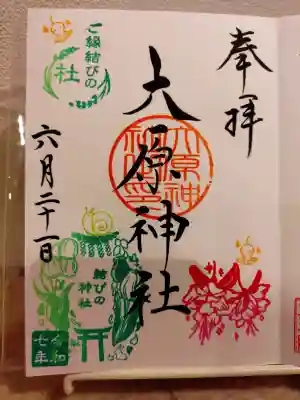 奉拝
大原神社
大原神社之印
ご縁結びの
社
六月二十一日
結びの
神社
令和
七年